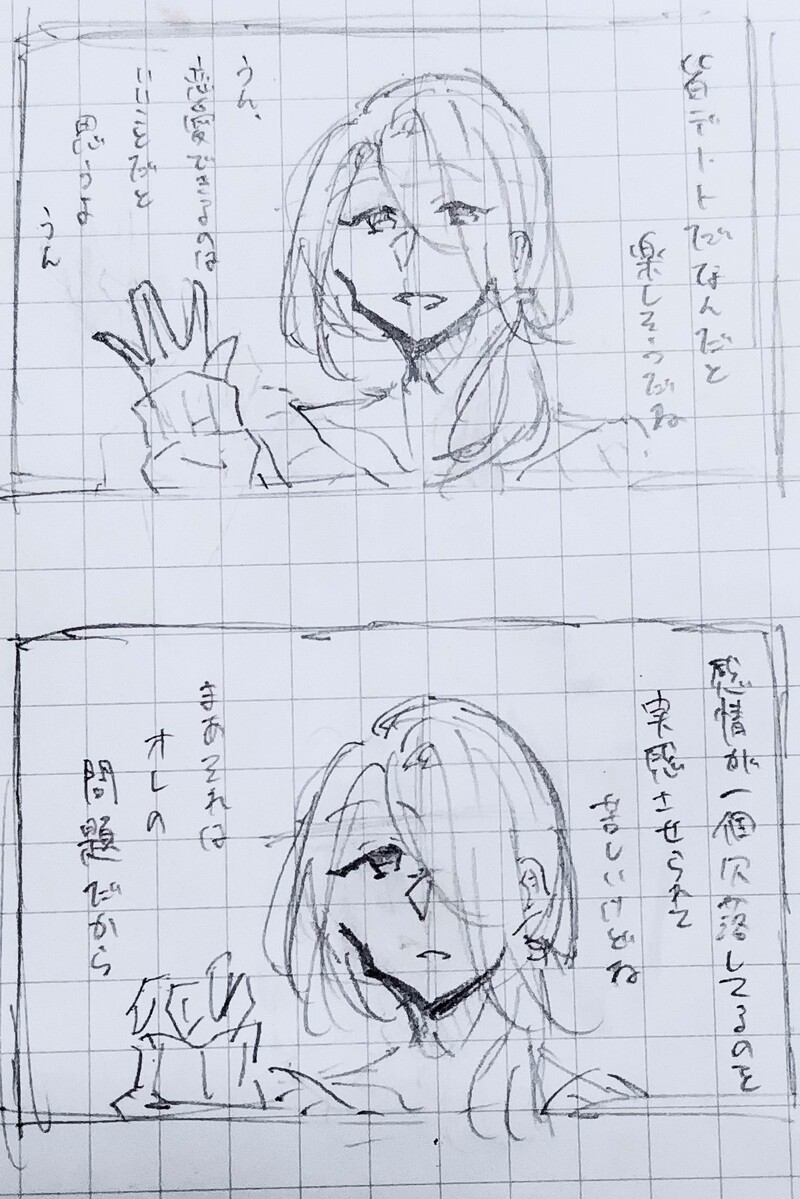 皆デートだなんだと
楽しそうだね
うん。
恋愛は
いいことだと
思うよ
うん
感情が一個欠落してるのを
実感させられて
苦しいけどね
まあそれは
オレの
問題だから